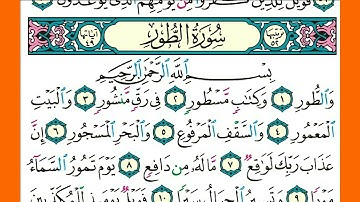 فَوَيْلٌ لِّلَّذِينَ كَفَرُوا۟ مِن يَوْمِهِمُ ٱلَّذِى يُوعَدُونَ
ترتيبها ٥٢ سُورَةُ الطُّورِ آياتها ٤٩
بِسْمِ ٱللَّهِ ٱلرَّحْمَٰنِ ٱلرَّحِيمِ
وَٱلطُّورِ ١ وَكِتَٰبٍ مَّسْطُورٍ ٢ فِى رَقٍّ مَّنشُورٍ ٣ وَٱلْبَيْتِ
ٱلْمَعْمُورِ ٤ وَٱلسَّقْفِ ٱلْمَرْفُوعِ ٥ وَٱلْبَحْرِ ٱلْمَسْجُورِ ٦ إِنَّ
عَذَابَ رَبِّكَ لَوَٰقِعٌ ٧ مَّا لَهُۥ مِن دَافِعٍ ٨ يَوْمَ تَمُورُ ٱلسَّمَآءُ
مَوْرًا ٩ وَتَسِيرُ ٱلْجِبَالُ سَيْرًا ١٠ فَوَيْلٌ يَوْمَئِذٍ لِّلْمُكَذِّبِينَ